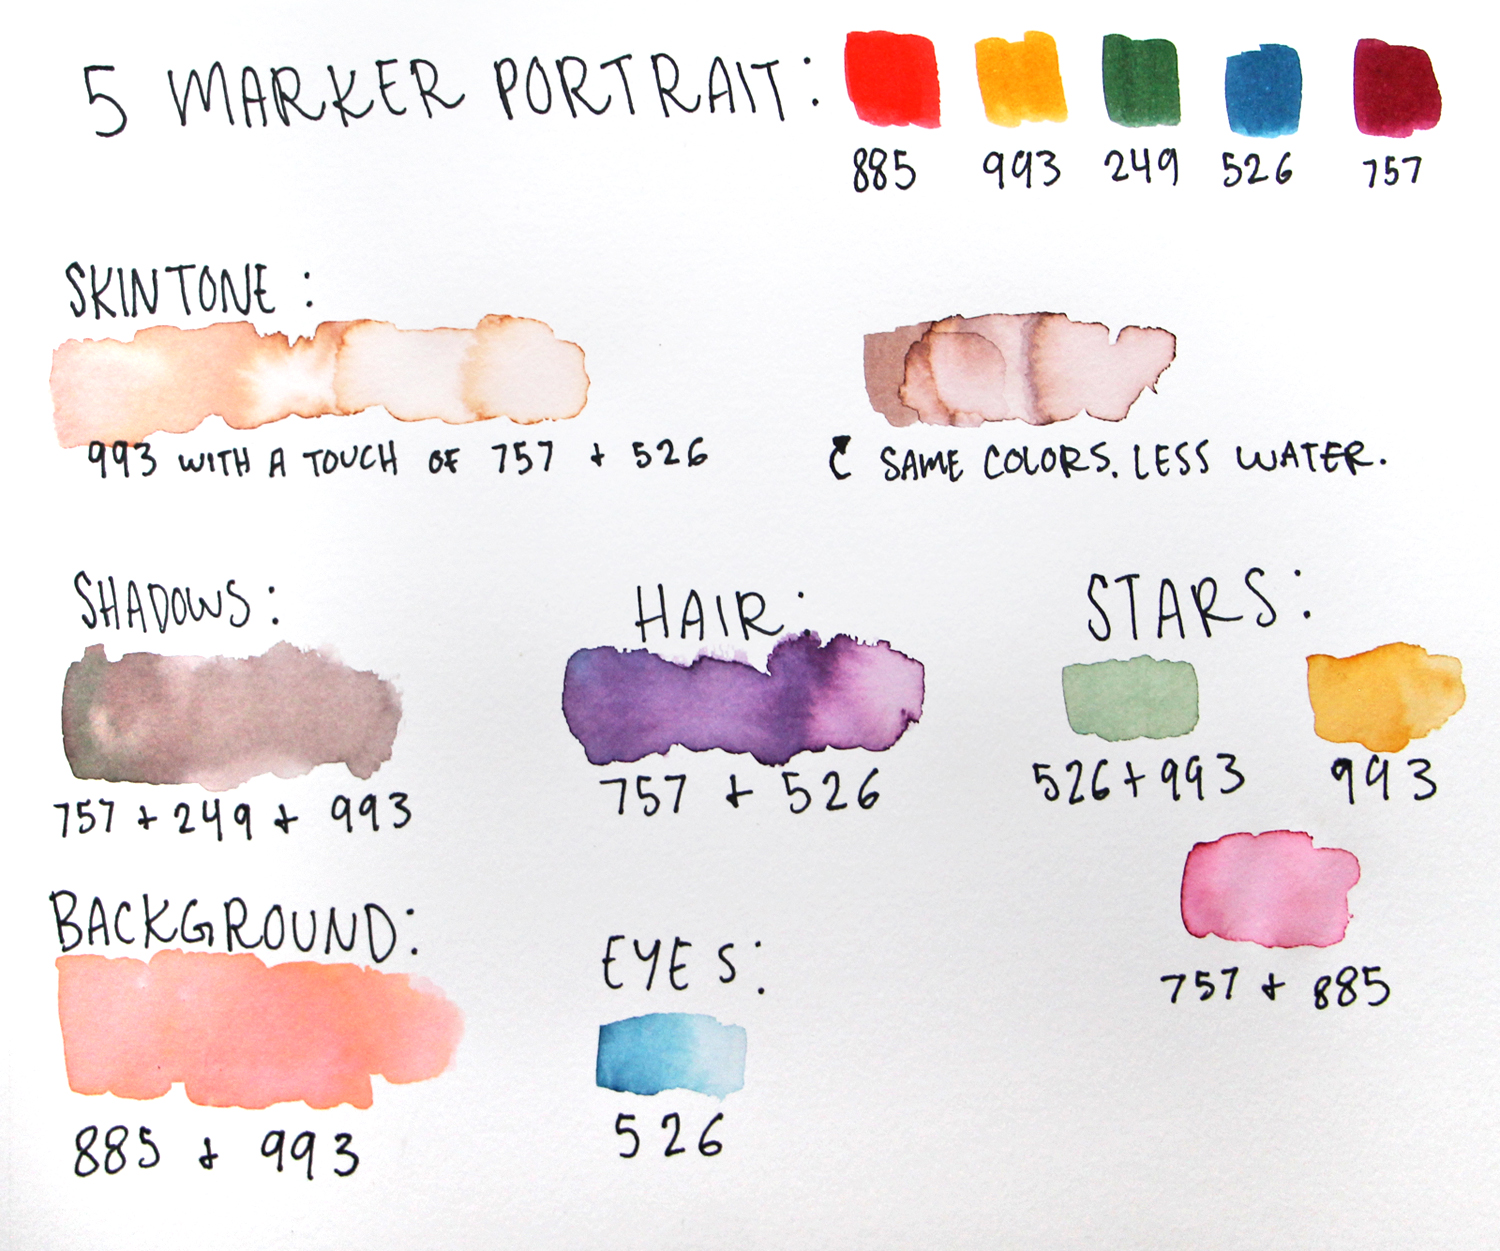 5 MARKER PORTRAIT:
885 993 249 526 757
SKINTONE :
993 WITH A TOUCH OF 757 + 526
SAME COLORS. LESS WATER.
SHADOWS:
757 + 249 + 993
HAIR:
757 + 526
STARS:
526 + 993
993
757 + 885
BACKGROUND:
885 + 993
EYES:
526